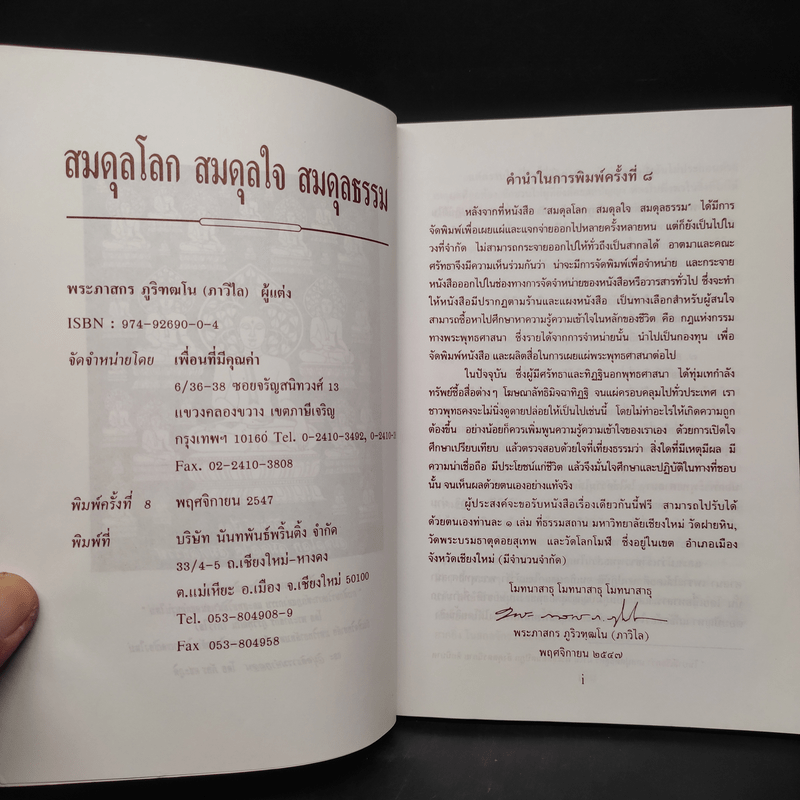 สมดุลโลก สมดุลใจ สมดุลธรรม
พระภาสกร ภูริฑฒโน (ภาวิไล) ผู้แต่ง
ISBN : 974-92690-0-4
จัดจำหน่ายโดย เพื่อนที่มีคุณค่า
6/36-38 ซอยจรัญสนิทวงศ์ 13
แขวงคลองขวาง เขตภาษีเจริญ
กรุงเทพฯ 10160 Tel. 0-2410-3492, 0-2410-3
Fax. 02-2410-3808
พิมพ์ครั้งที่ 8 พฤศจิกายน 2547
พิมพ์ที่ บริษัท นันทพันธ์พริ้นติ้ง จำกัด
33/4-5 ถ.เชียงใหม่-หางดง
ต.แม่เหียะ อ.เมือง จ.เชียงใหม่ 50100
Tel. 053-804908-9
Fax. 053-804958
คำนำในการพิมพ์ครั้งที่ ๘
หลังจากที่หนังสือ "สมดุลโลก สมดุลใจ สมดุลธรรม" ได้มีการ
จัดพิมพ์เพื่อเผยแผ่และแจกจ่ายออกไปหลายครั้งหลายหน แต่ก็ยังเป็นไปใน
วงที่จำกัด ไม่สามารถกระจายออกไปให้ทั่วถึงเป็นสากลได้ อาตมาและคณะ
ศรัทธาจึงมีความเห็นร่วมกันว่า น่าจะมีการจัดพิมพ์เพื่อจำหน่าย และกระจาย
หนังสือออกไปในช่องทางการจัดจำหน่ายของหนังสือหรือวารสารทั่วไป ซึ่งจะทำ
ให้หนังสือมีปรากฏตามร้านและแผงหนังสือ เป็นทางเลือกสำหรับผู้สนใจ
สามารถซื้อหาไปศึกษาหาความรู้ความเข้าใจในหลักของชีวิต คือ กฎแห่งกรรม
ทางพระพุทธศาสนา ซึ่งรายได้จากการจำหน่ายนั้น นำไปเป็นกองทุน เพื่อ
จัดพิมพ์หนังสือ และผลิตสื่อในการเผยแผ่พระพุทธศาสนาต่อไป
ในปัจจุบัน ซึ่งผู้มีศรัทธาและทิฏฐินอกพุทธศาสนา ได้ทุ่มเทกำลัง
ทรัพย์ซื้อสื่อต่างๆ โฆษณาลัทธิมิจฉาทิฏฐิ จนแผ่ครอบคลุมไปทั่วประเทศ เรา
ชาวพุทธคงจะไม่นิ่งดูดายปล่อยให้เป็นไปเช่นนี้ โดยไม่ทำอะไรให้เกิดความถูก
ต้องขึ้น อย่างน้อยก็ควรเพิ่มพูนความรู้ความเข้าใจของเราเอง ด้วยการเปิดใจ
ศึกษาเปรียบเทียบ แล้วตรวจสอบด้วยใจที่เที่ยงธรรมว่า สิ่งใดที่มีเหตุมีผล มี
ความน่าเชื่อถือ มีประโยชน์แก่ชีวิต แล้วจึงมั่นใจศึกษาและปฏิบัติในทางที่ชอบ
นั้น จนเห็นผลด้วยตนเองอย่างแท้จริง
ผู้ประสงค์จะขอรับหนังสือเรื่องเดียวกันนี้ฟรี สามารถไปรับได้
ด้วยตนเองท่านละ ๑ เล่ม ที่ธรรมสถาน มหาวิทยาลัยเชียงใหม่ วัดฝายหิน,
วัดพระบรมธาตุดอยสุเทพ และวัดโลกโมฬี ซึ่งอยู่ในเขต อำเภอเมือง
จังหวัดเชียงใหม่ (มีจำนวนจำกัด)
โมทนาสาธุ โมทนาสาธุ โมทนาสาธุ
พระภาสกร ภูริวฑฺฒโน (ภาวิไล)
พฤศจิกายน ๒๕๔๗
i